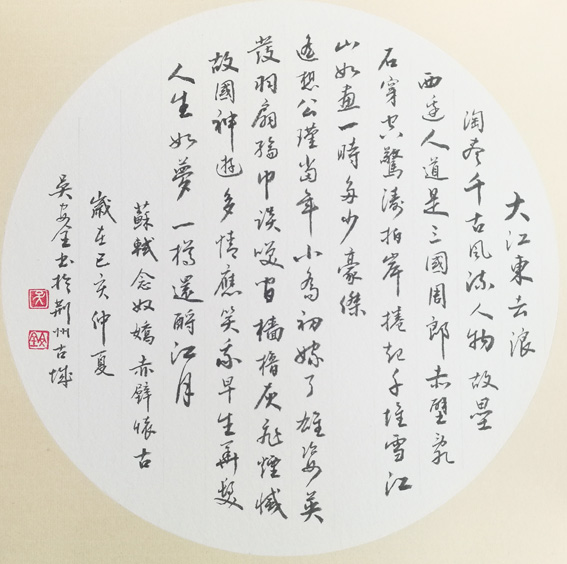 大江東去浪
淘盡千古風流人物故壘
西邊人道是三國周郎赤壁亂
石穿空驚濤拍岸捲起千堆雪江
山如畫一時多少豪傑
遙想公瑾當年小喬初嫁了雄姿英
發羽扇綸巾談笑間檣櫓灰飛煙滅
故國神遊多情應笑我早生華髮
人生如夢一樽還酹江月
蘇軾念奴嬌赤壁懷古
歲在己亥仲夏
吳安全書於荊州古城